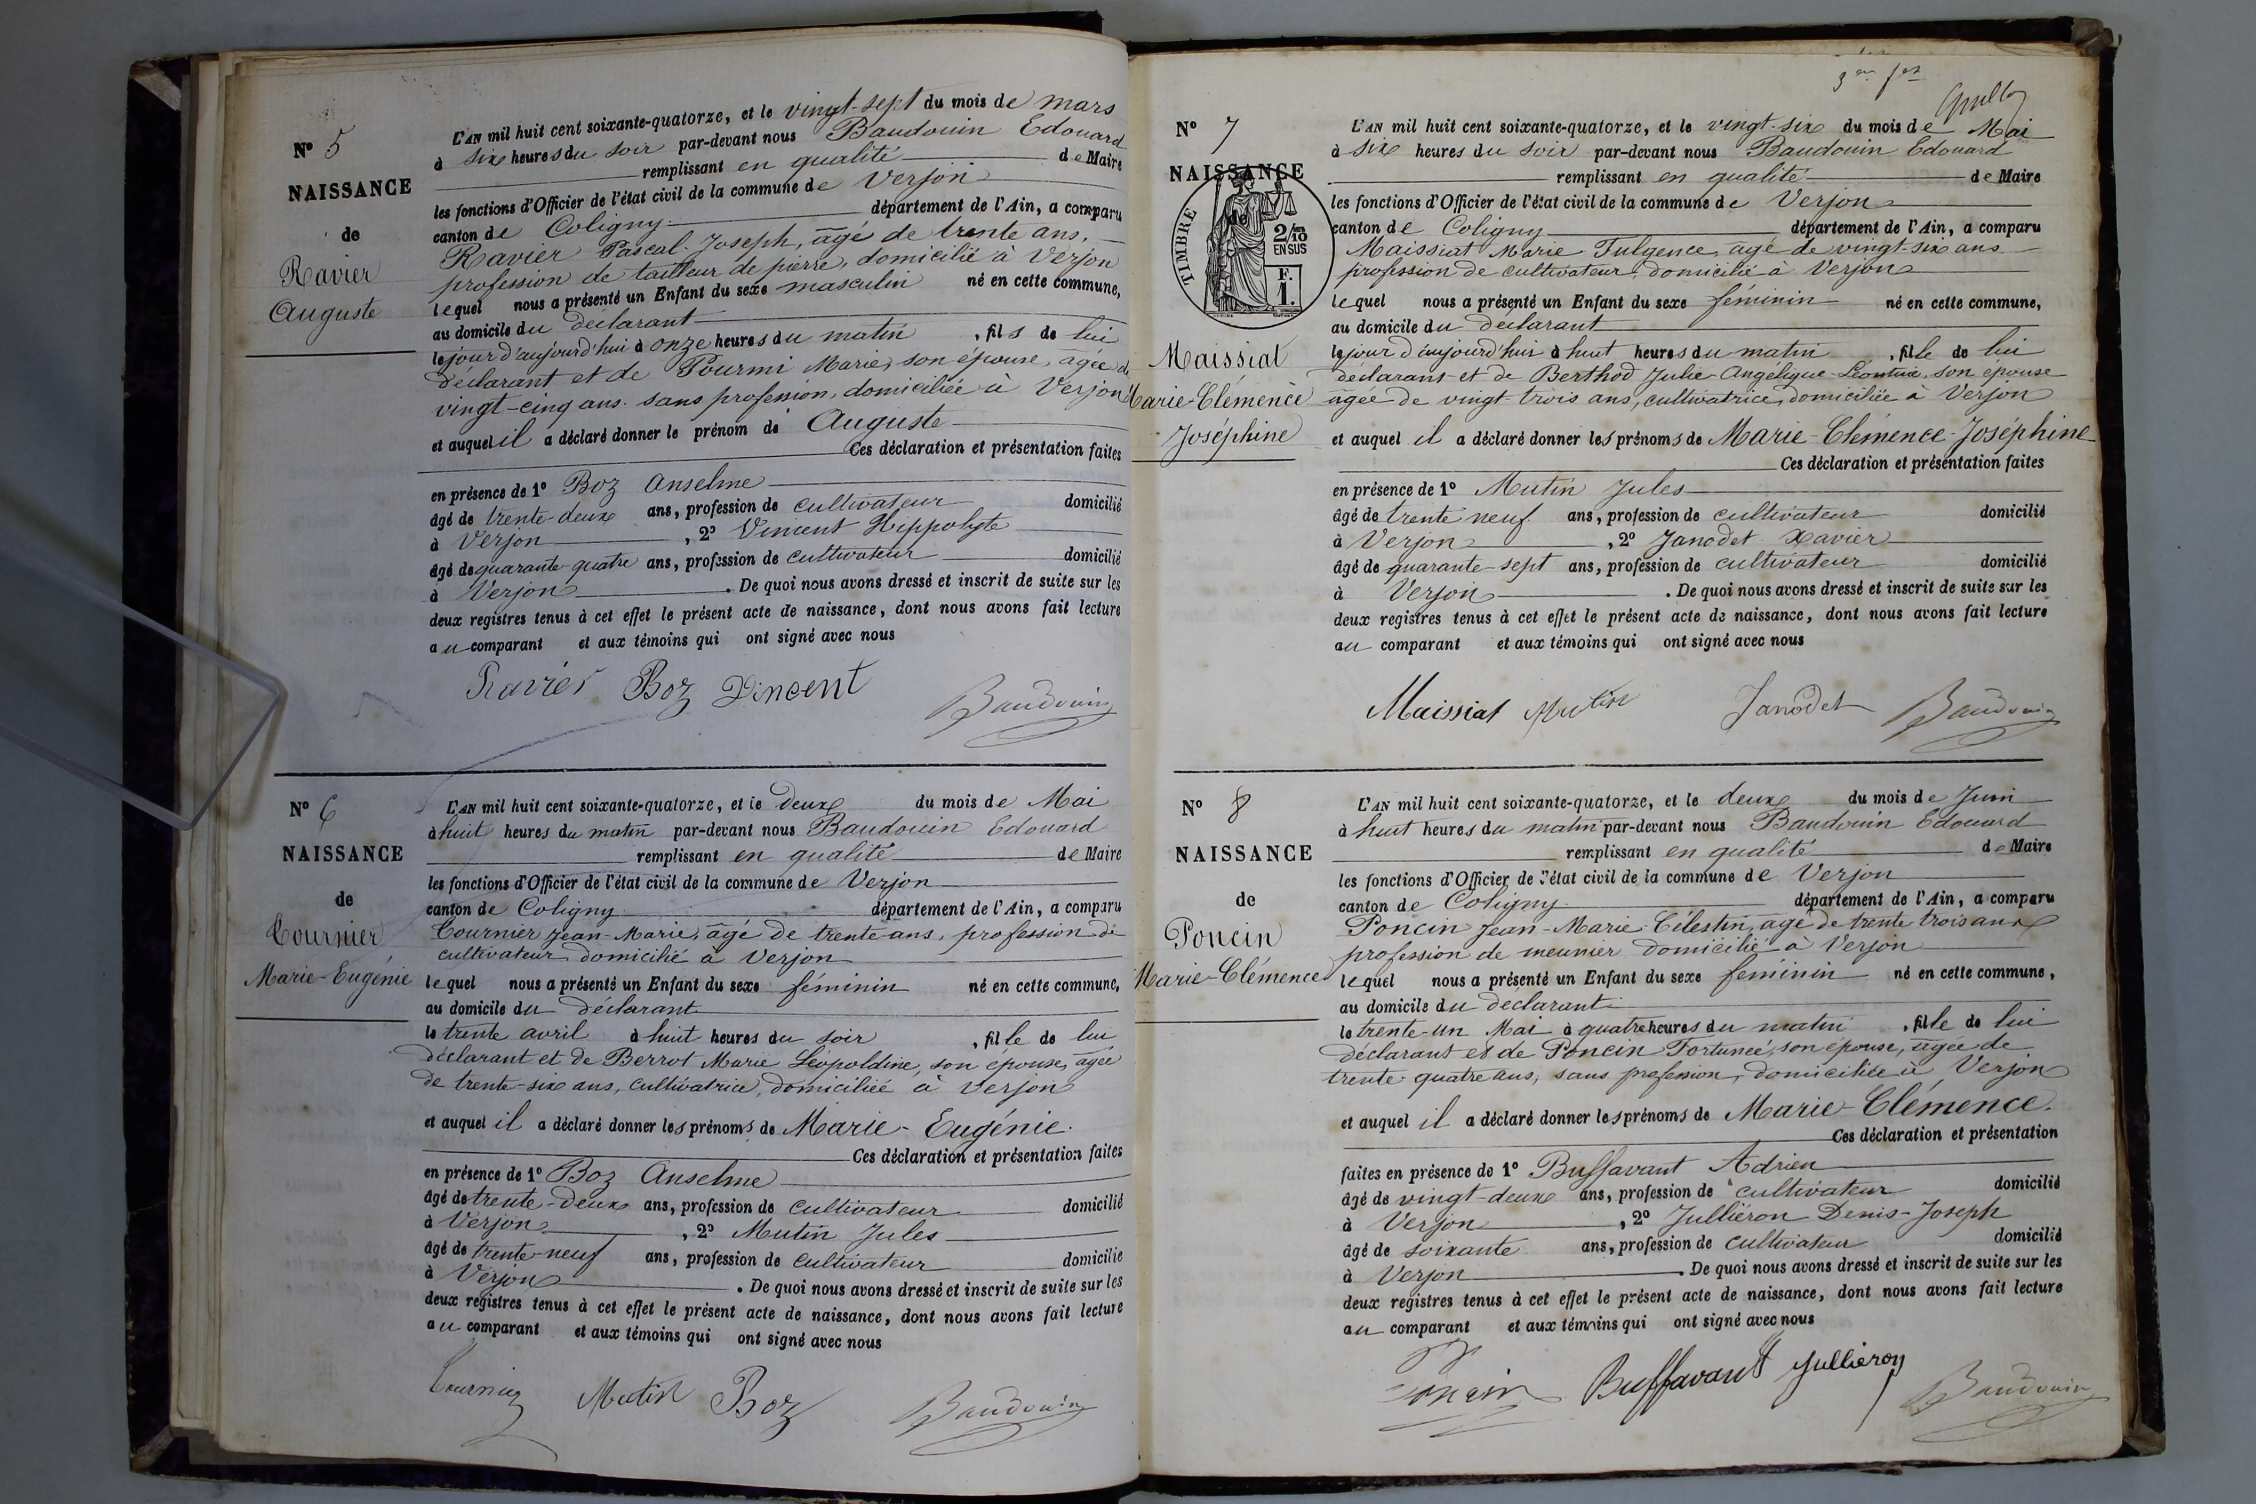 N° 5
NAISSANCE
de
Ravier
Auguste
L'AN mil huit cent soixante-quatorze, et le vingt-sept du mois de mars
à six heures du soir par-devant nous Baudouin Edouard
remplissant en qualité de Maire
les fonctions d'Officier de l'état civil de la commune de Verjon
canton de Coligny département de l'Ain, a comparu
Ravier Pascal-Joseph, âgé de trente ans,
profession de tailleur de pierre, domicilié à Verjon
lequel nous a présenté un Enfant du sexe masculin né en cette commune,
au domicile du déclarant
le jour d'aujourd'hui à onze heures du matin , fils de lui
déclarant et de Pourmi Marie, son épouse, agée de
vingt-cinq ans. sans profession, domiciliée à Verjon
et auquel il a déclaré donner le prénom de Auguste
Ces déclaration et présentation faites
en présence de 1° Boz Anselme
âgé de trente-deux ans, profession de cultivateur domicilié
à Verjon , 2° Vincent Hippolyte
âgé de quarante-quatre ans, profession de cultivateur domicilié
à Verjon . De quoi nous avons dressé et inscrit de suite sur les
deux registres tenus à cet effet le présent acte de naissance, dont nous avons fait lecture
au comparant et aux témoins qui ont signé avec nous
Ravier Boz Vincent Baudouin
N° 6
NAISSANCE
de
Cournier
Marie-Eugénie
L'AN mil huit cent soixante-quatorze, et le deux du mois de Mai
à huit heures du matin par-devant nous Baudouin Edouard
remplissant en qualité de Maire
les fonctions d'Officier de l'état civil de la commune de Verjon
canton de Coligny département de l'Ain, a comparu
Cournier Jean-Marie, âgé de trente ans, profession de
cultivateur, domicilié à Verjon
lequel nous a présenté un Enfant du sexe féminin né en cette commune,
au domicile du déclarant
le trente avril à huit heures du soir , fille de lui
déclarant et de Berrot Marie Léopoldine, son épouse, âgée
de trente-six ans, cultivatrice, domiciliée à Verjon
et auquel il a déclaré donner les prénoms de Marie-Eugénie.
Ces déclaration et présentation faites
en présence de 1° Boz Anselme
âgé de trente-deux ans, profession de cultivateur domicilié
à Verjon , 2° Mutin Jules
âgé de trente-neuf ans, profession de cultivateur domicilié
à Verjon . De quoi nous avons dressé et inscrit de suite sur les
deux registres tenus à cet effet le présent acte de naissance, dont nous avons fait lecture
au comparant et aux témoins qui ont signé avec nous
Cournier Mutin Boz Baudouin
N° 7
NAISSANCE
de
TIMBRE
2/10
EN SUS
F.
1.
Maissiat
Marie-Clémence
Joséphine
L'AN mil huit cent soixante-quatorze, et le vingt-six du mois de Mai
à six heures du soir par-devant nous Baudouin Edouard
remplissant en qualité de Maire
les fonctions d'Officier de l'état civil de la commune de Verjon
canton de Coligny département de l'Ain, a comparu
Maissiat Marie Fulgence, agé de vingt-six ans
profession de cultivateur, domicilié à Verjon
lequel nous a présenté un Enfant du sexe féminin né en cette commune,
au domicile du déclarant
le jour d'aujourd'hui à huit heures du matin , fille de lui
déclarant et de Berthod Julie Angélique Léontine, son épouse
agée de vingt-trois ans, cultivatrice, domiciliée à Verjon
et auquel il a déclaré donner les prénoms de Marie-Clémence-Joséphine
Ces déclaration et présentation faites
en présence de 1° Mutin Jules
âgé de trente neuf ans, profession de cultivateur domicilié
à Verjon , 2° Janodet Xavier
âgé de quarante-sept ans, profession de cultivateur domicilié
à Verjon . De quoi nous avons dressé et inscrit de suite sur les
deux registres tenus à cet effet le présent acte de naissance, dont nous avons fait lecture
au comparant et aux témoins qui ont signé avec nous
Maissiat Mutin Janodet Baudouin
N° 8
NAISSANCE
de
Poncin
Marie-Clémence
L'AN mil huit cent soixante-quatorze, et le deux du mois de Juin
à huit heures du matin par-devant nous Baudouin Edouard
remplissant en qualité de Maire
les fonctions d'Officier de l'état civil de la commune de Verjon
canton de Coligny département de l'Ain, a comparu
Poncin Jean-Marie Célestin, agé de trente trois ans
profession de meunier domicilié à Verjon
lequel nous a présenté un Enfant du sexe féminin né en cette commune,
au domicile du déclarant
le trente-un Mai à quatre heures du matin , fille de lui
déclarant et de Poncin Fortunée, son épouse, âgée de
trente quatre ans, sans profession, domiciliée à Verjon
et auquel il a déclaré donner les prénoms de Marie-Clémence.
Ces déclaration et présentation
faites en présence de 1° Buffavant Adrien
âgé de vingt-deux ans, profession de cultivateur domicilié
à Verjon , 2° Jullieron Denis-Joseph
âgé de soixante ans, profession de cultivateur domicilié
à Verjon . De quoi nous avons dressé et inscrit de suite sur les
deux registres tenus à cet effet le présent acte de naissance, dont nous avons fait lecture
au comparant et aux témoins qui ont signé avec nous
Poncin Buffavant Jullieron Baudouin